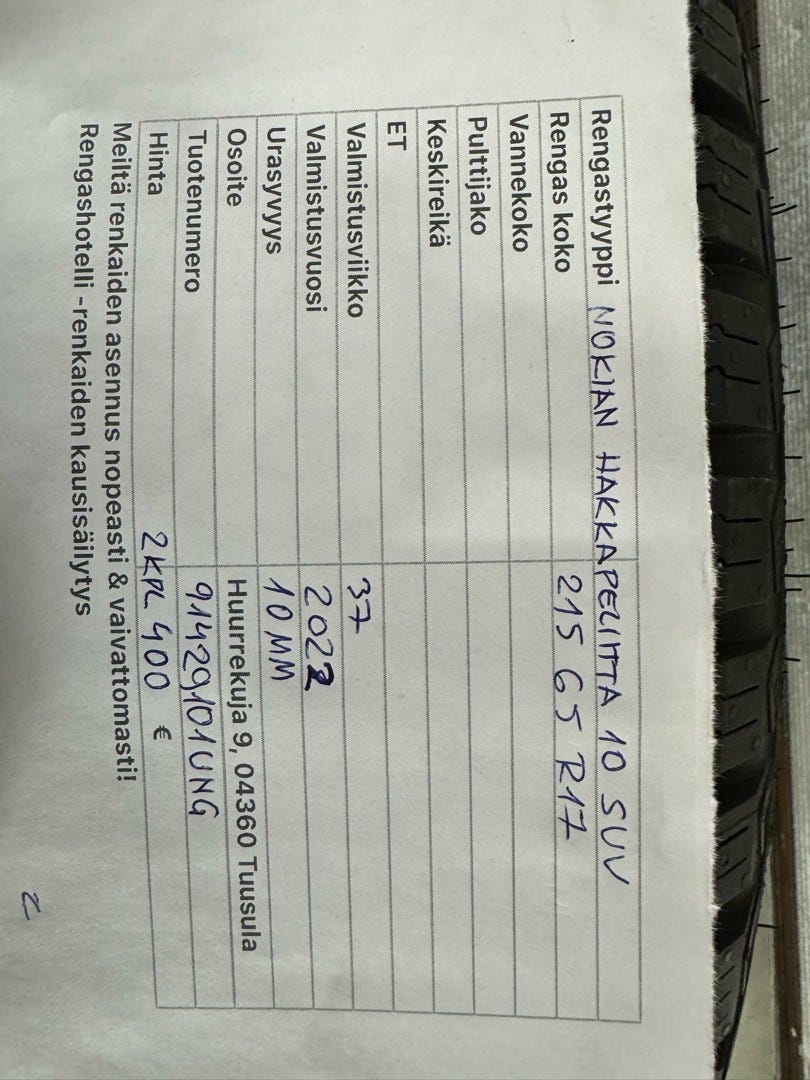 Rengastyyppi NOKIAN HAKKAPELIITTA 10 SUV
Rengas koko 215 65 R17
Vannekoko
Pulttijako
Keskireikä
ET
Valmistusviikko 37
Valmistusvuosi 2022
Urasyvyys 10 MM
Osoite Huurrekuja 9, 04360 Tuusula
Tuotenumero 91429101UNG
Hinta 2 KPL 400 €
Meiltä renkaiden asennus nopeasti & vaivattomasti!
Rengashotelli -renkaiden kausisäilytys